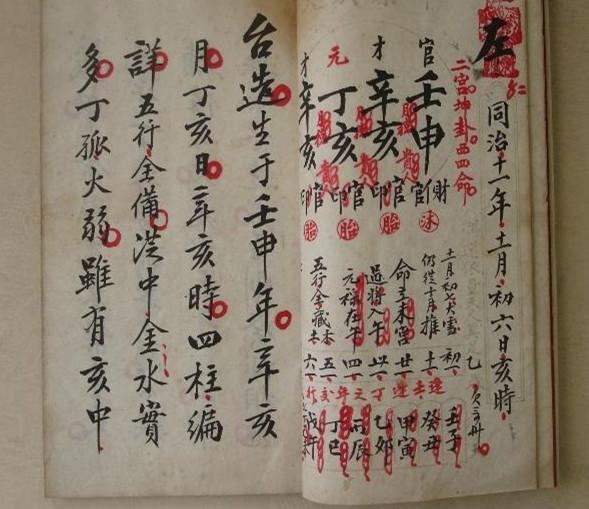 左
同治十一年十一月初六日亥時
二宮坤卦西四命
官 壬申
才 辛亥
元 丁亥
才 辛亥
財官印
官印
官印
官印
沐
胎
胎
胎
十一月初七大雪
仍從十月推
命主未宮
過將入午
元祿在午
五行全藏木土
初一
十一
廿一
卅一
四一
五一
六一
逢壬丁之年交行
壬子
癸丑
甲寅
乙卯
丙辰
丁巳
戊午
台造生于壬申年辛亥
月丁亥日辛亥時四柱編
詳五行全備洪中金水實
多丁孤火弱雖有亥中